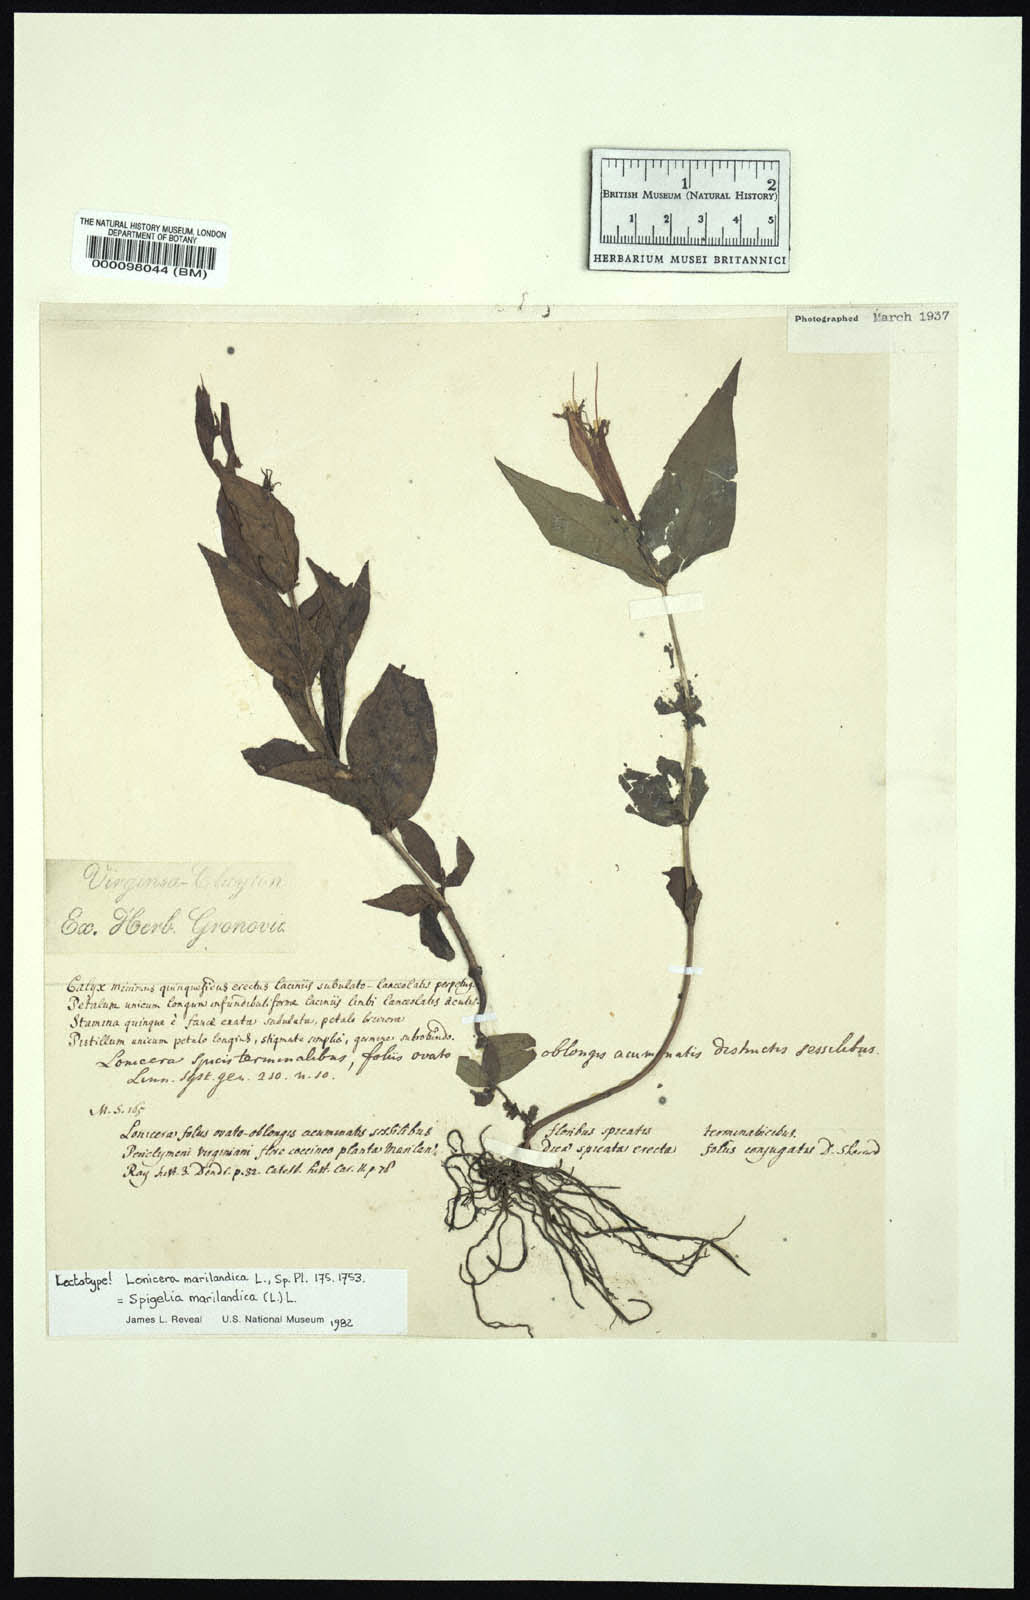 THE NATURAL HISTORY MUSEUM, LONDON
DEPARTMENT OF BOTANY
000098044 (BM)
1 2
BRITISH MUSEUM (NATURAL HISTORY)
1 2 3 4 5
HERBARIUM MUSEI BRITANNICI
Photographed March 1937
Virginia-Clayton
Ex. Herb. Gronovii
Calyx minimus quinquefidus erectus laciniis subulato-lanceolatis
Petalum unicum longum infundibuliforme laciniis limbi lanceolatis acutis.
Stamina quinque è fauce enata subulata, petalo breviora
Pistillum unicum petalo longius, stigmate simplici, germine subrotundo.
Lonicera spicis terminalibus, foliis ovato oblongis acuminatis distinctis sessilibus.
Linn. Syst. gen. 230. n. 10.
Lonicera foliis ovato-oblongis acuminatis sessilibus floribus spicatis
Periclymeni virginiani flore coccineo planta Marilandica spicata erecta foliis conjugatis D. Sherard
Ray hist. 3. Dendr. p. 32. Catesb. hist. Car. II. p 78
Lectotype! Lonicera marilandica L., Sp. Pl. 175. 1753.
= Spigelia marilandica (L.) L.
James L. Reveal U.S. National Museum 1982